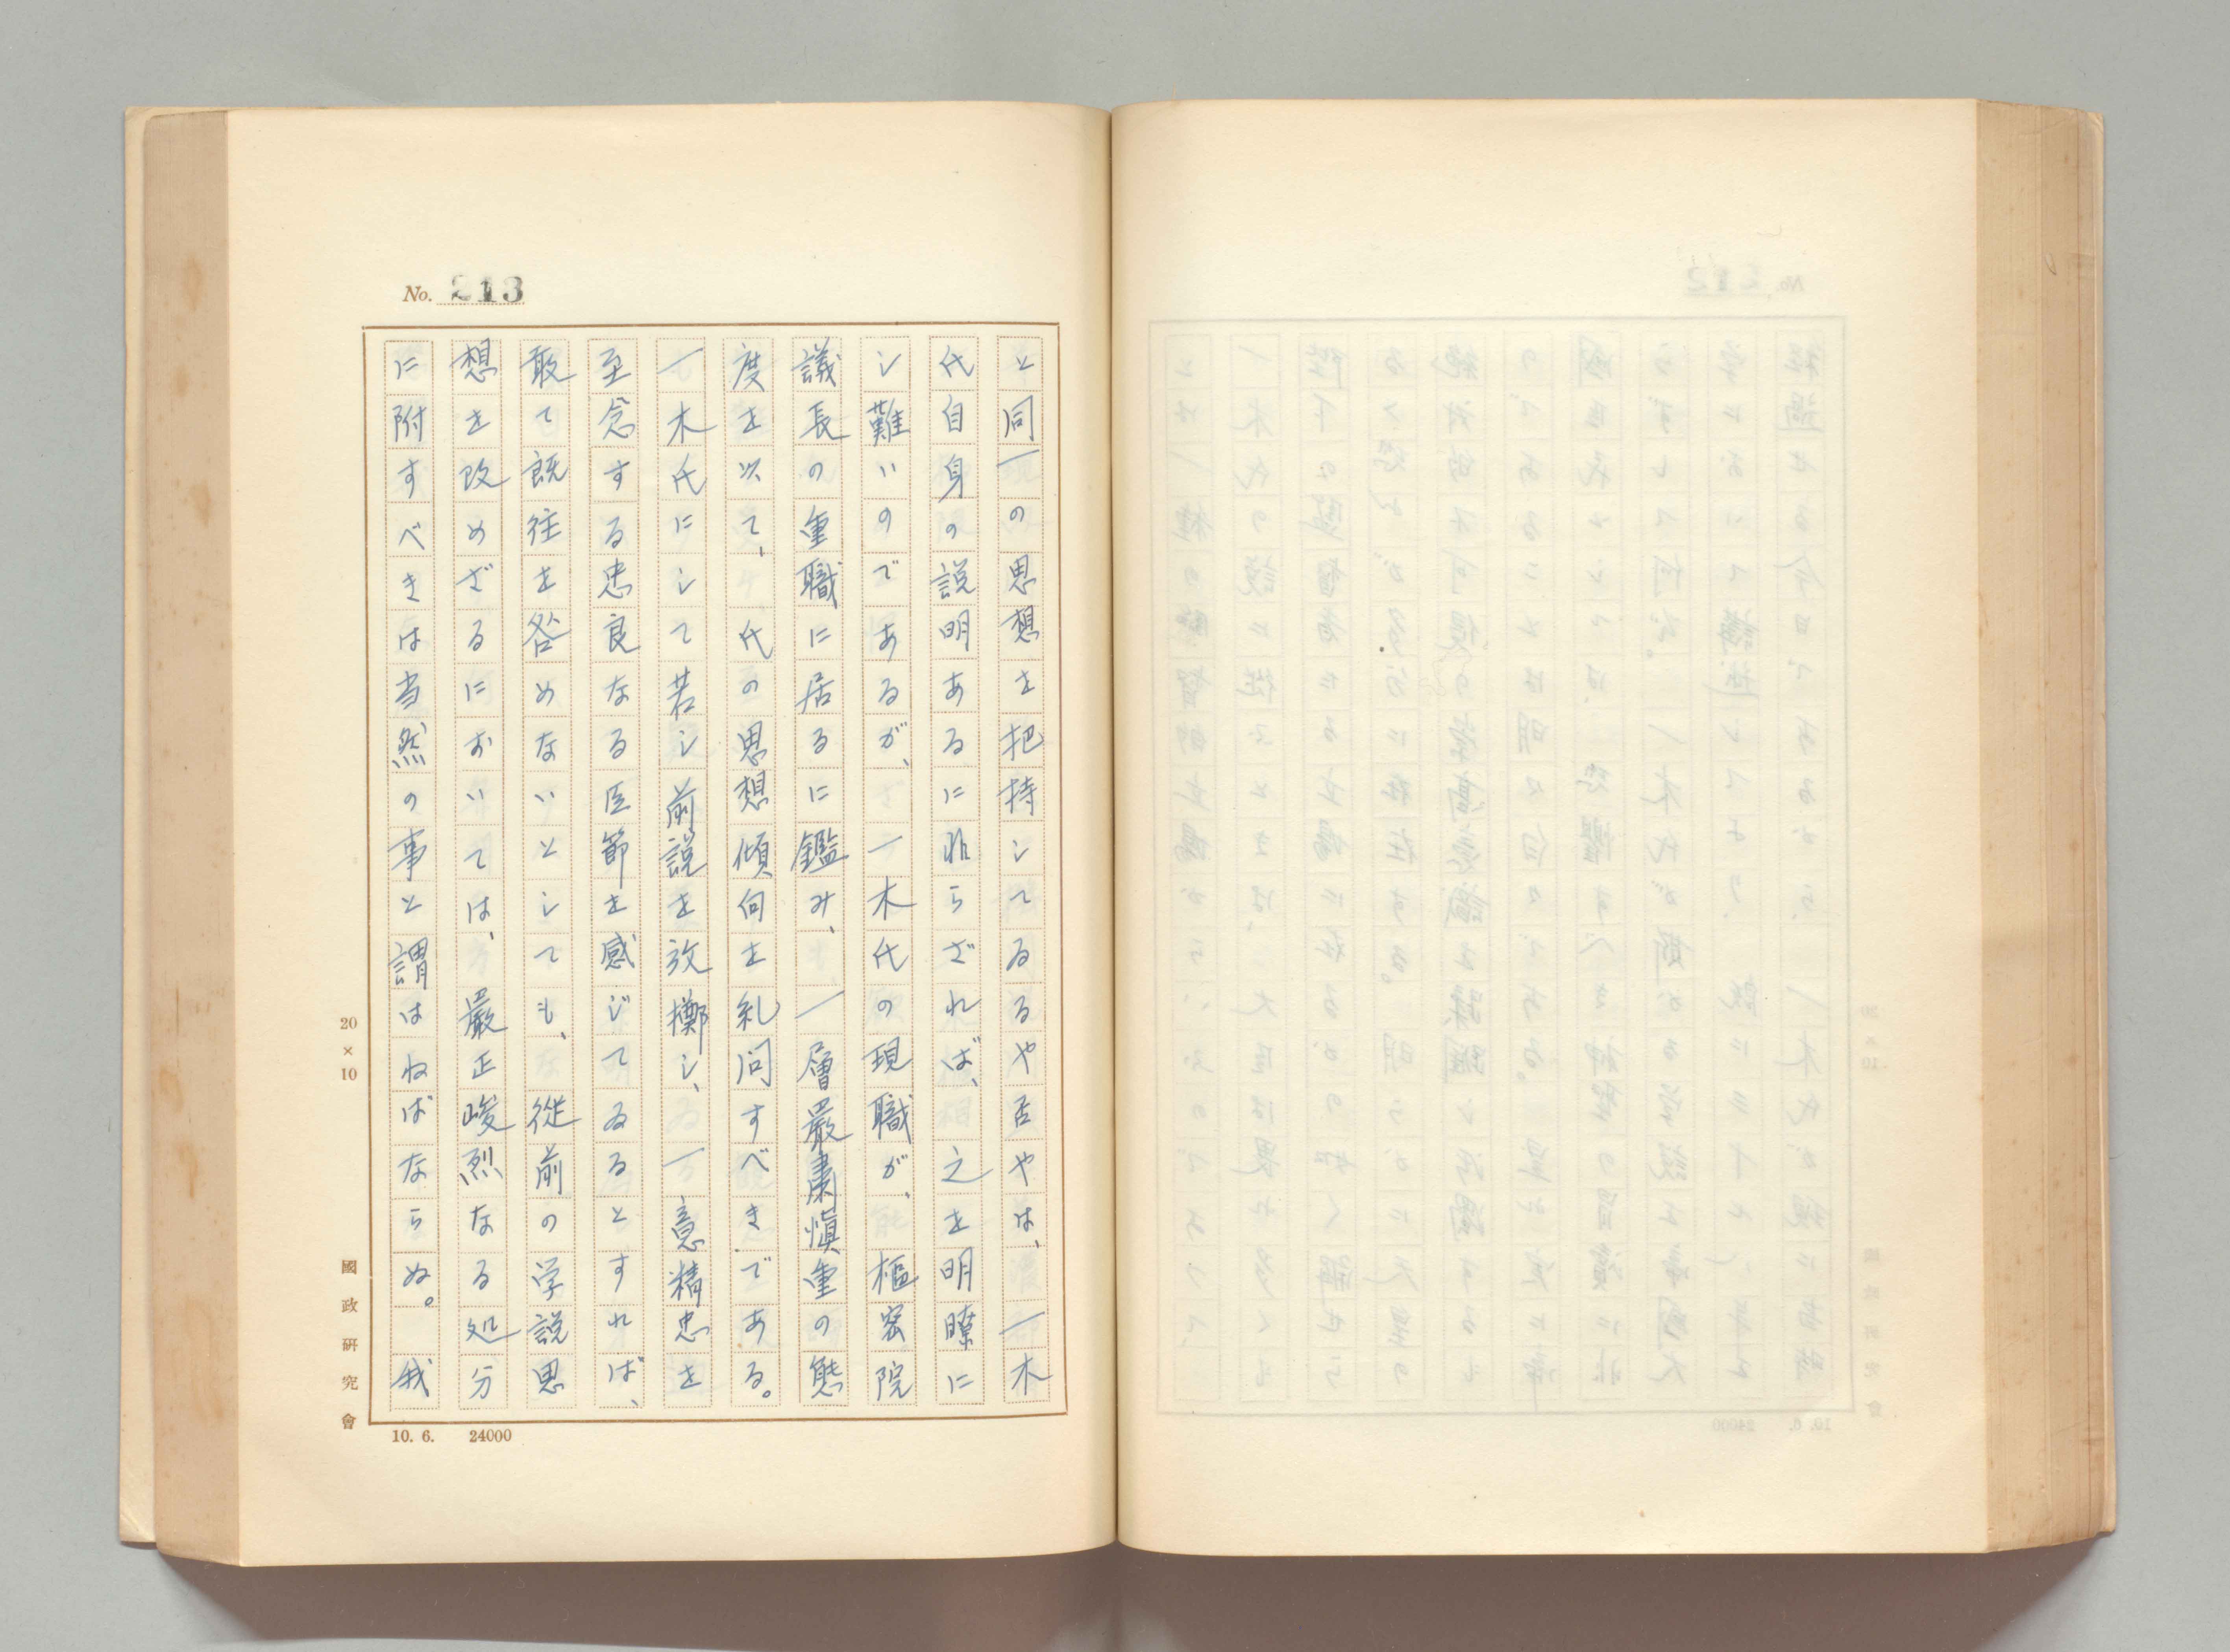 No. 213
と同一の思想を把持してゐるや否やは、一木
氏自身の説明あるに非らざれば、之を明瞭に
し難いのであるが、一木氏の現職が、樞密院
議長の重職に居るに鑑み、一層嚴粛慎重の態
度を以て、氏の思想傾向を糺問すべきである。
一木氏にして若し前説を放擲し、一意精忠を
至念する忠良なる臣節を感じてゐるとすれば、
敢て既往を咎めないとしても、從前の学説思
想を改めざるにおいては、嚴正峻烈なる処分
に附すべきは当然の事と謂はねばならぬ。我
20×10
國政研究會
10. 6. 24000